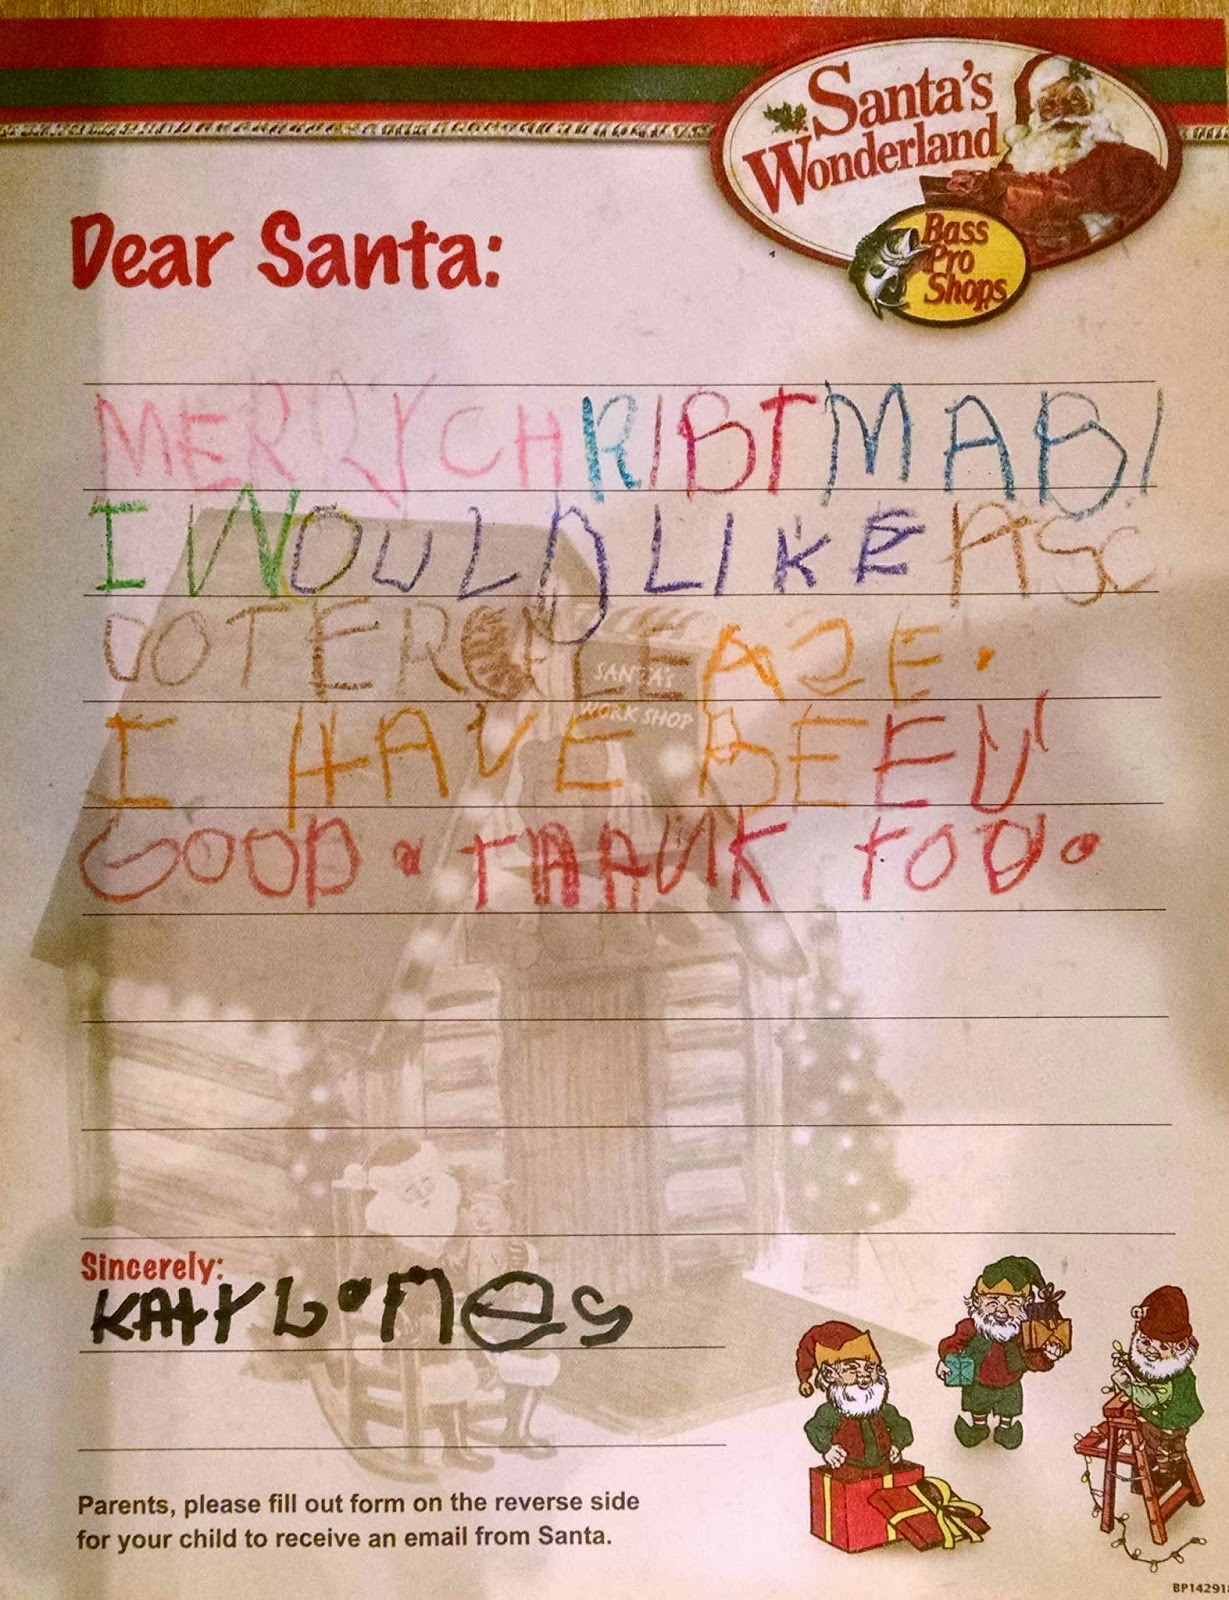 Santa's
Wonderland
Bass
Pro
Shops
Dear Santa:
MERRY CHRIBTMAB!
I WOULD LIKE A SC
OOTER PLEASE.
SANTA'S
WORK SHOP
I HAVE BEEN
GOOD. THANK YOU.
Sincerely:
KATY
Parents, please fill out form on the reverse side
for your child to receive an email from Santa.
BP142918